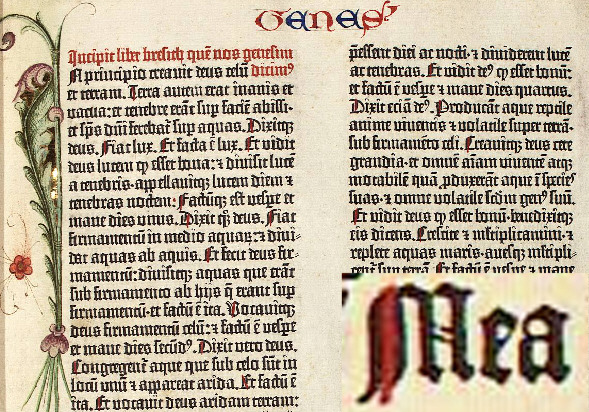 GENESIS
Incipit liber bresith quē nos genesim
N principio creauit deus celū dicimꝰ
et terram. Terra autem erat inanis et
vacua: et tenebre erāt sup faciē abissi·
et spūs dñi ferebat sup aquas. Dixitqꝫ
deus. Fiat lux. Et facta ē lux. Et vidit
deus lucem ꝙ esset bona: ⁊ diuisit lucē
a tenebris·appellauitqꝫ lucem diem ⁊
tenebras noctem. Factūqꝫ est vespe et
mane dies vnus. Dixit qꝫ deus. Fiat
firmamentū in medio aquaꝝ: ⁊ diui-
dat aquas ab aquis. Et fecit deus fir-
mamentū: diuisitqꝫ aquas que erāt
sub firmamento ab hijs q̄ erant sup
firmamentū: et factū ē ita. Vocauitqꝫ
deus firmamentū celū: ⁊ factū ē vespe
et mane dies secūdꝰ. Dixit vero deus.
Congregent aque que sub celo sūt in
locū vnū ⁊ appareat arida. Et factū ē
ita. Et vocauit deus aridam terram:
pessent diei ac nocti· ⁊ diuiderent lucē
ac tenebras. Et vidit deꝰ ꝙ esset bonū:
et factū ē vespe ⁊ mane dies quartus.
Dixit eciā deꝰ. Producāt aque reptile
anime viuentis ⁊ volatile super terrā·
sub firmamēto celi. Creauitqꝫ deus cete
grandia·et omnē aīam viuentē atqꝫ
motabilē quā ꝓduxerāt aque ī species
suas· ⁊ omne volatile scdm genꝰ suū.
Et vidit deus ꝙ esset bonū·benedixitqꝫ
eis dicens. Crescite ⁊ multiplicamini· ⁊
replete aquas maris·auesqꝫ multipli-
cent sup terrā. Et factū ē vespe ⁊ mane
Mea